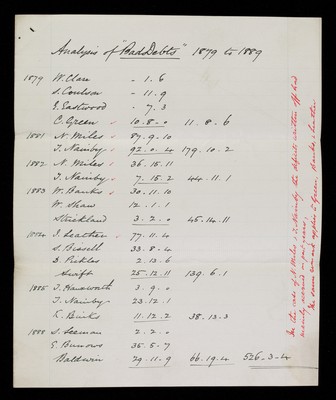 Analysis of "Bad Debts" 1879 to 1889
1879 W. Clan - 1. 6
S. Coulson - 11. 9
J. Eastwood - 7. 3
C. Green 10. 8. 0 11. 8. 6
1881 N. Miles 87. 9. 10
T. Naimby 92. 0. 4 179. 10. 2
1882 N. Miles 36. 15. 11
T. Naimby 7. 15. 2 44. 11. 1
1883 W. Banks 30. 11. 10
W. Shaw 12. 1. 1
Strickland 3. 2. 0 45. 14. 11
1884 J. Leather 77. 11. 4
S. Bissell 33. 8. 4
D. Pickles 2. 13. 6
Swift 25. 12. 11 139. 6. 1
1885 T. Haworth 3. 9. 0
T. Naimby 23. 12. 1
R. Binks 11. 12. 2 38. 13. 3
1888 S. Seeman 2. 2. 0
G. Burrows 35. 5. 7
Baldwin 29. 11. 9 66. 19. 4 526. 3. 4
In the case of N. Miles & T. Naimby the debts written off had
mainly accrued in past years;
the same remark applies to Green Banks & Leather